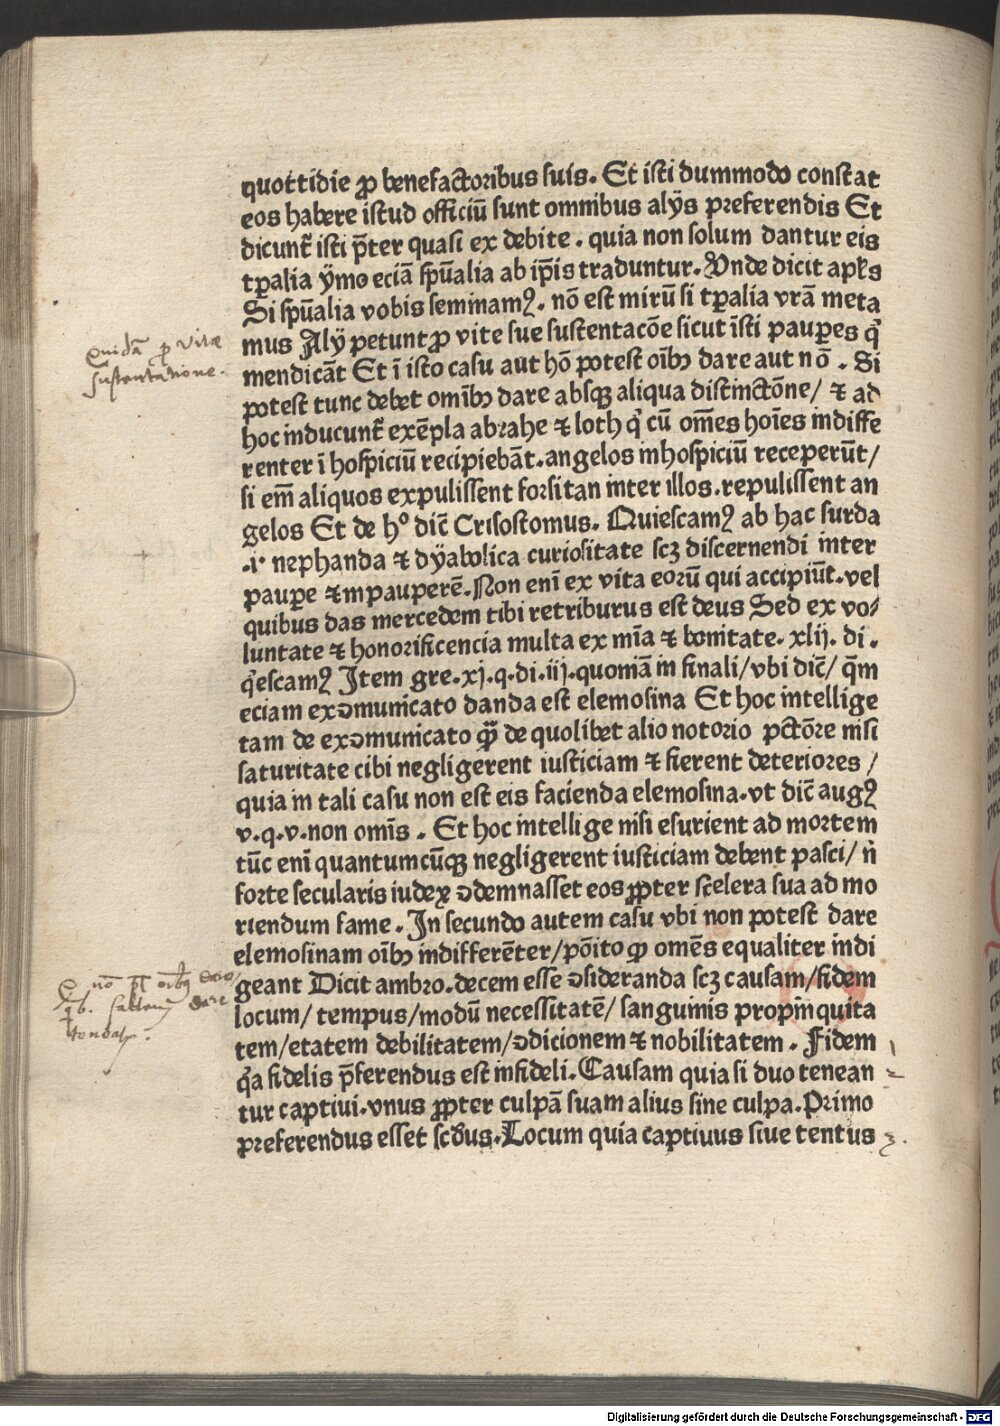 quottidie ꝓ benefactoribus suis. Et isti dummodo constat
eos habere istud officiū sunt omnibus alÿs preferendis Et
dicunt̄ isti p̄ter quasi ex debite. quia non solum dantur eis
tꝑalia ÿmo eciā spūalia ab ip̄is traduntur. Vnde dicit apl̄s
Si spūalia vobis seminamꝰ. nō est mirū si tꝑalia vr̄a meta
mus Alÿ petunt ꝓ vite sue sustentacōe sicut īsti pauꝑes q'
mendicāt Et ī isto casu aut hō potest oībꝰ dare aut nō. Si
potest tunc debet omībꝰ dare absqꝫ aliqua distinctōne/ ⁊ ad
hoc inducunt̄ exēpla abrahe ⁊ loth q' cū om̄es hoīes indiffe
renter ī hospiciū recipiebāt. angelos inhospiciū receperūt/
si em̄ aliquos expulissent forsitan inter illos. repulissent an
gelos Et de hᵒ dic̄ Crisostomus. Quiescamꝰ ab hac surda
.i. nephanda ⁊ dÿabolica curiositate scꝫ discernendi inter
pauꝑe ⁊ mpauperē. Non enī ex vita eorū qui accipiūt. vel
quibus das mercedem tibi retriburus est deus Sed ex vo/
luntate ⁊ honorificencia multa ex mīa ⁊ bonitate. xlij. di.
q'escamꝰ Item gre. xj. q. di. iij. quoniā in finali/ vbi dic̄/ qm̄
eciam exↄmunicato danda est elemosina Et hoc intellige
tam de exↄmunicato qȝ̄ de quolibet alio notorio pctōre nisi
saturitate cibi negligerent iusticiam ⁊ fierent deteriores /
quia in tali casu non est eis facienda elemosina. vt dic̄ augꝰ
v. q. v. non omīs . Et hoc intellige nisi esurient ad mortem
tūc enī quantumcūqꝫ negligerent iusticiam debent pasci/ n̄
forte secularis iudex ↄdemnasset eos ꝓpter sc̄elera sua ad mo
riendum fame. In secundo autem casu vbi non potest dare
elemosinam oībꝰ indifferēter/ pōito ꝙ omēs equaliter indi
geant Dicit ambro. decem esse ↄsideranda scꝫ causam/ fidem
locum/ tempus/ modū necessitatē/ sanguinis propīnquita
tem/ etatem debilitatem/ ↄdicionem ⁊ nobilitatem. Fidem
q'a fidelis p̄ferendus est infideli. Causam quia si duo tenean
tur captiui. vnus ꝓpter culpā suam alius sine culpa. Primo
preferendus esset scd̄us. Locum quia captiuus siue tentus
Quidā ꝓ vitæ
sustentatione.
Digitalisierung gefördert durch die Deutsche Forschungsgemeinschaft - DFG